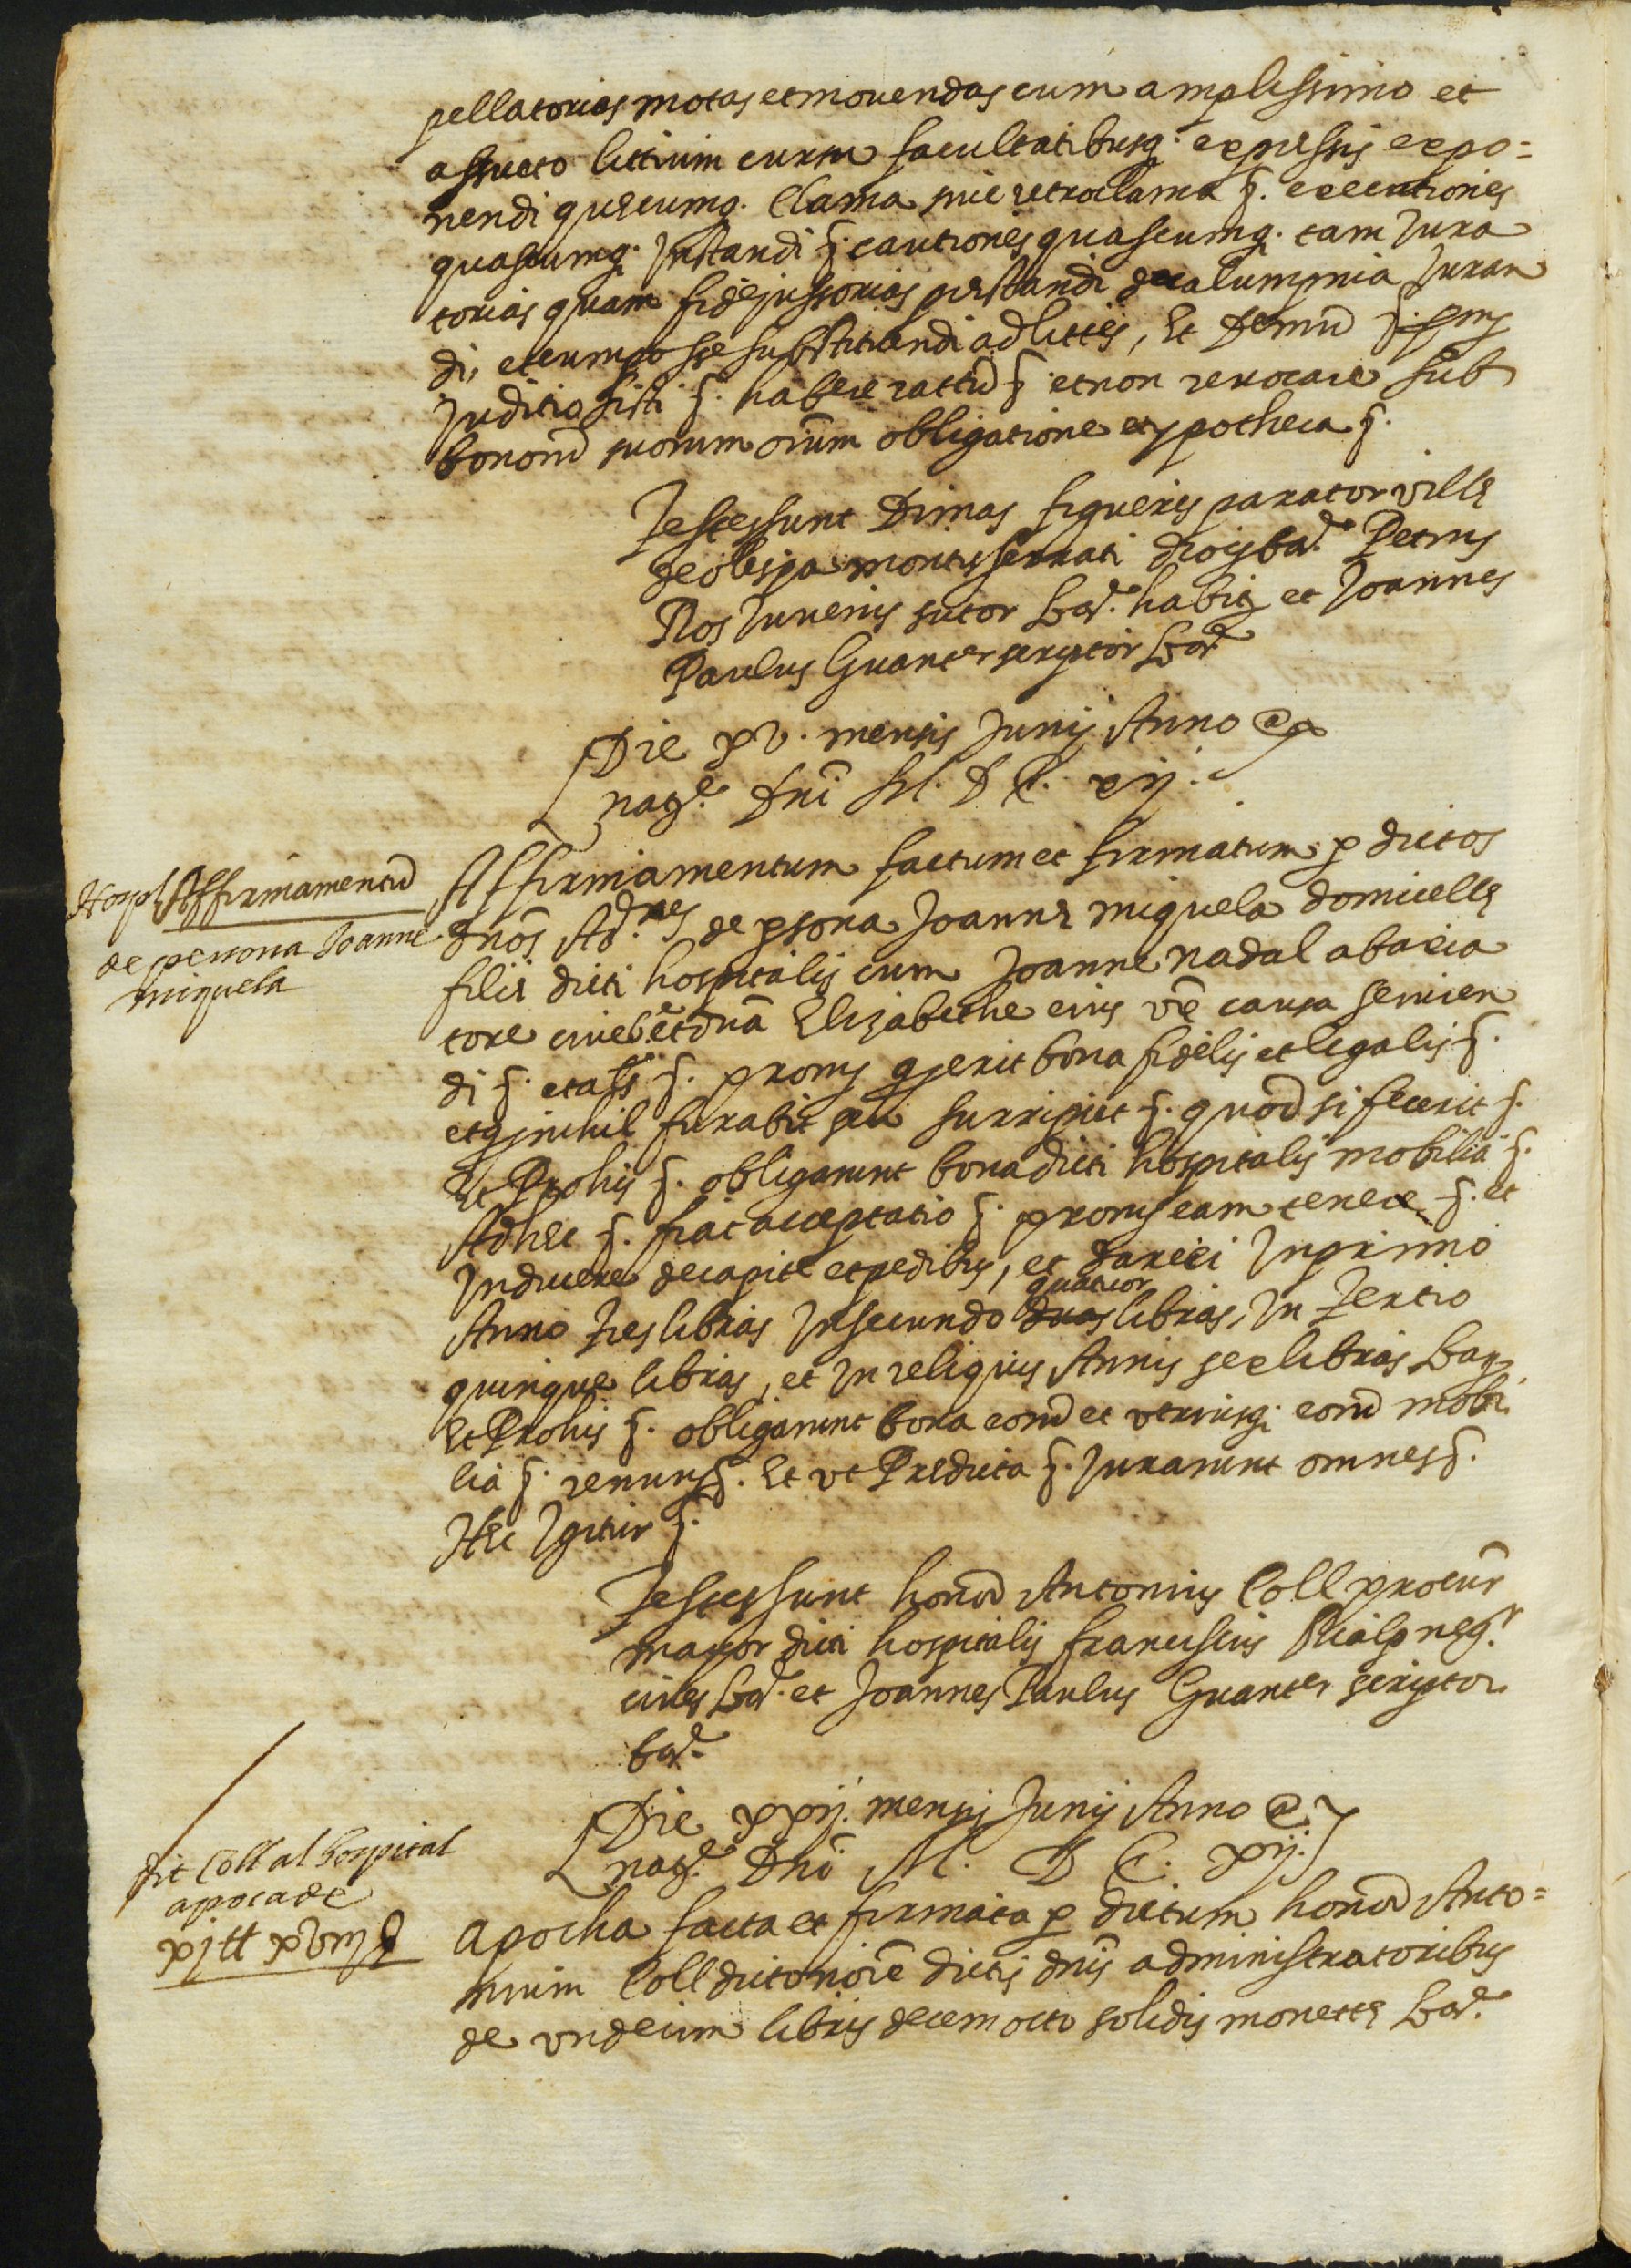 pellatorias motas et movendas cum amplissimo et
assueto littium cursu facultatibusq. expressis expo=
nendi quecumq. clama sive retroclama §. executiones
quascumq. Instandi §. cautiones quascumq. tam Jura
torias quam fidejussorias prestandi de calumpnia Juran
di, et cum posse substituendi ad littes, Et Demu
Juditio sisti §. habere rattu § et non revocare sub
bonoru suorum oium obligatione et ypotheca §.
Testes sunt Dimas figueres parator ville
de olespa montisserrati diocis bar. Petrus
Ros Juvenis sutor Bar. habis et Joannes
Paulus Guanter scriptor Bar.
Die xv. mensis Junij Anno @
nat.e Dni M. D C. xij.
Hospl Affirmamentu
de persona Joanne
miquela
Affirmamentum factum et firmatum p dictos
dnos Ad.res de psona Joanne miquela domicelle
filie dicti hospitalis cum Joanne nadal abaxia
tore cive b. et dna Elizabethe eius ve causa servien
di §. et ass §. proms q erit bona fidelis et legalis §.
et q nihil furabit seu surripiet §. quod si fecerit §.
Et Prohis §. obligarunt bona dicti hospitalis mobilia §.
Ad hec §. fiat acceptatio §. proms eam tenere §. et
Induere de capite et pedibus, et dare ei In primo
Anno Tres libras In secundo duas quatuor libras, In Tertio
quinque libras, et In reliquis Annis sex libras Bar.
Et Prohis §. obligarunt bona eoru et utriusq. eoru mobi
lia §. renuns §. Et ut Predicta §. Jurarunt omnes §.
Hec Igitur §.
Testes sunt honor. Antonius Coll procur
mayor dicti hospitalis franciscus Rialp neg.r
cives Bar. et Joannes Paulus Guanter scriptor
bar.
Die xxij. mensis Junij Anno @
nat.e Dni M. D C. xij.
dit Coll al hospital
apoca de
xj ll xviij s
Apocha facta et firmata p dictum honor. Anto=
nium Coll dicto noie dictis dnis administratoribus
de undecim libris decem octo solidis monette Bar.